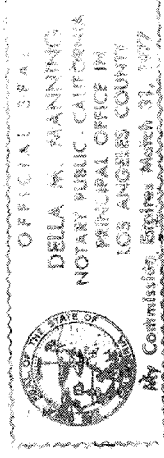 OFFICIAL SEAL
DELLA M. MANNING
NOTARY PUBLIC - CALIFORNIA
PRINCIPAL OFFICE IN
LOS ANGELES COUNTY
My Commission Expires March 31, 1977
THE STATE OF